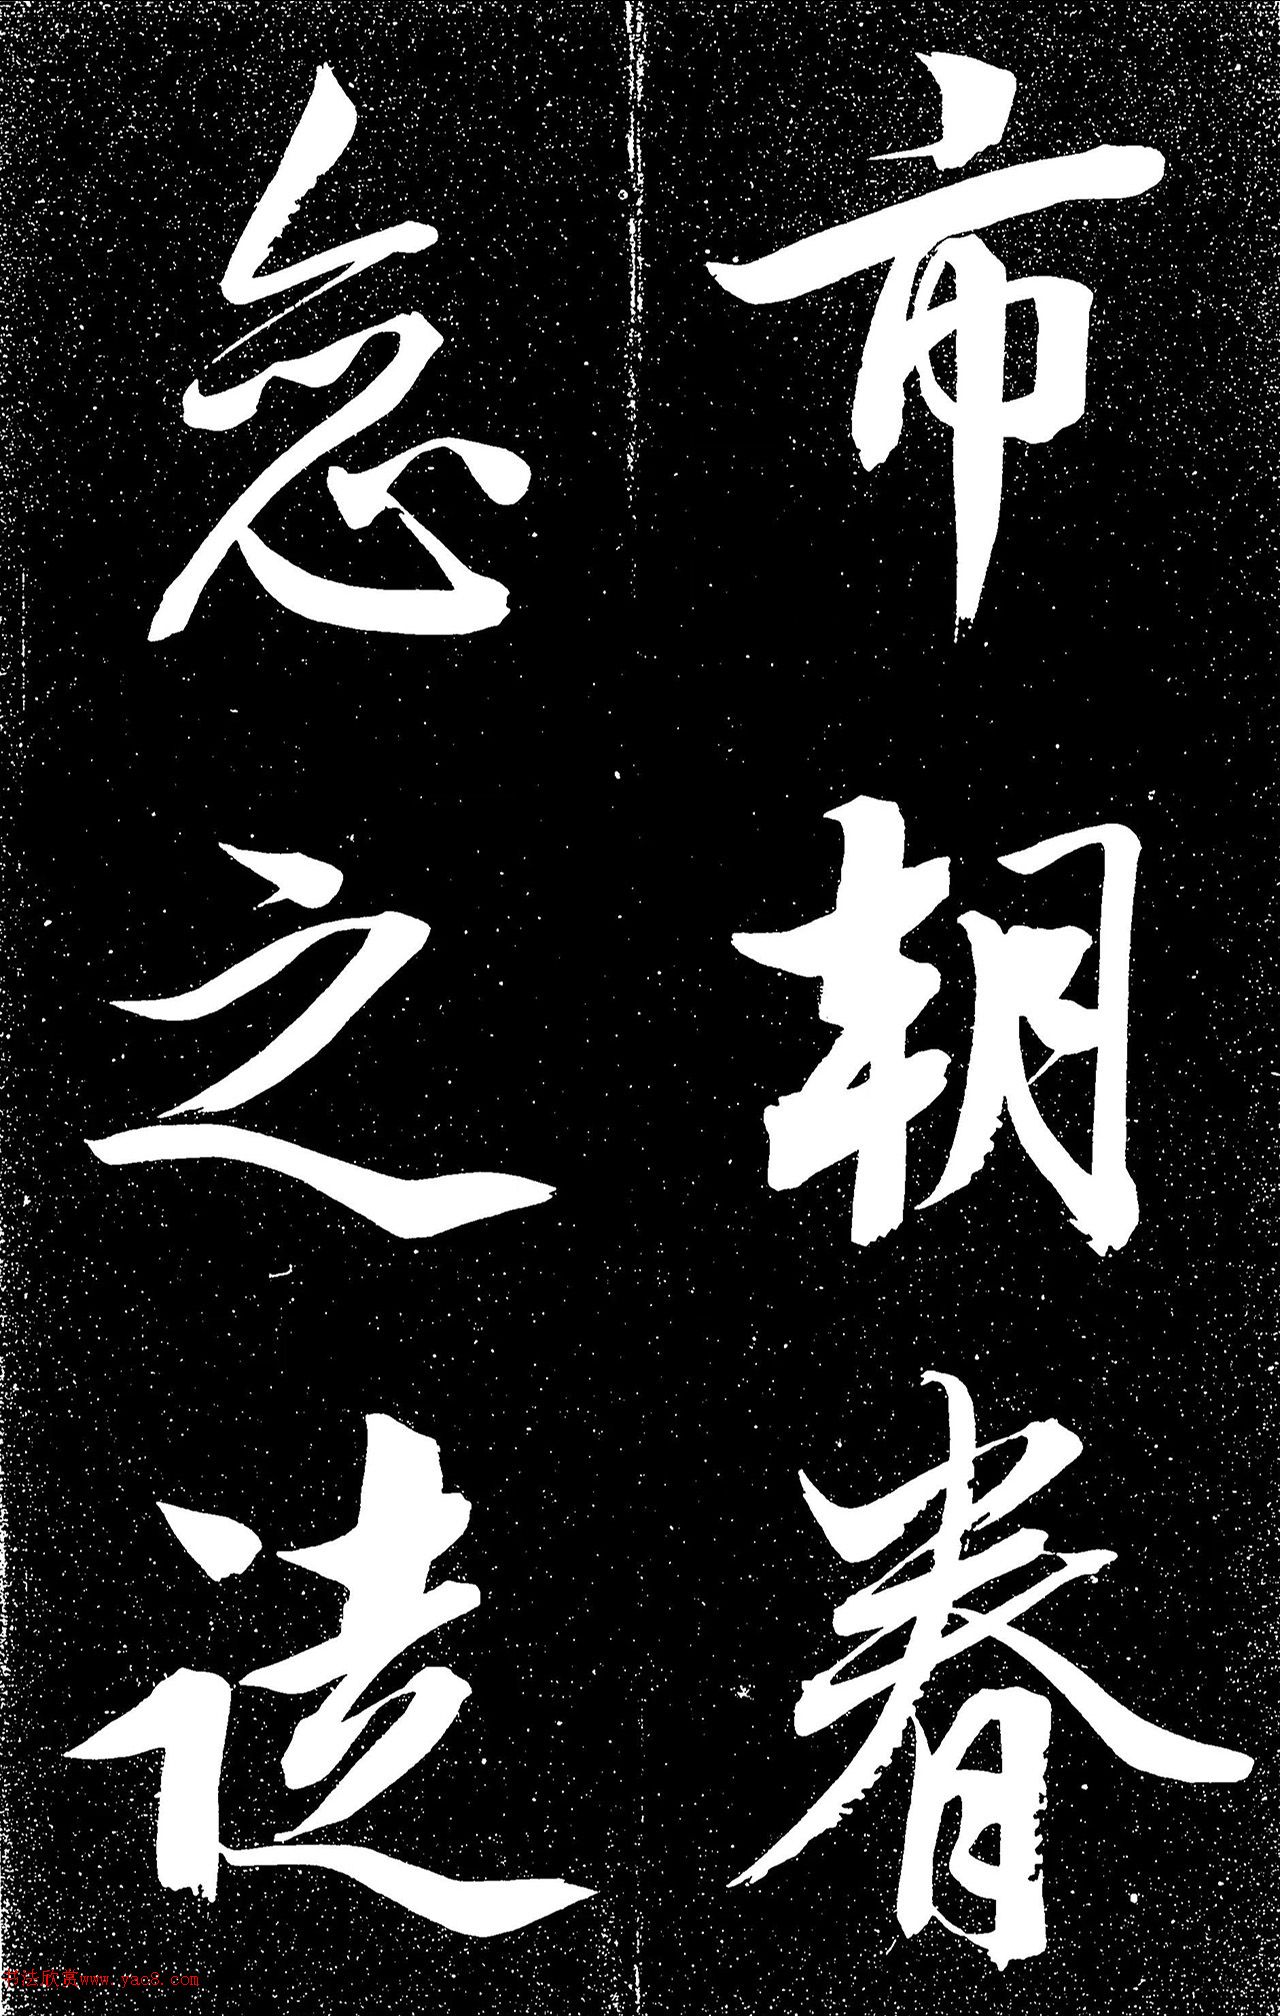 市朝眷
念之造
书法欣赏www.yac8.com